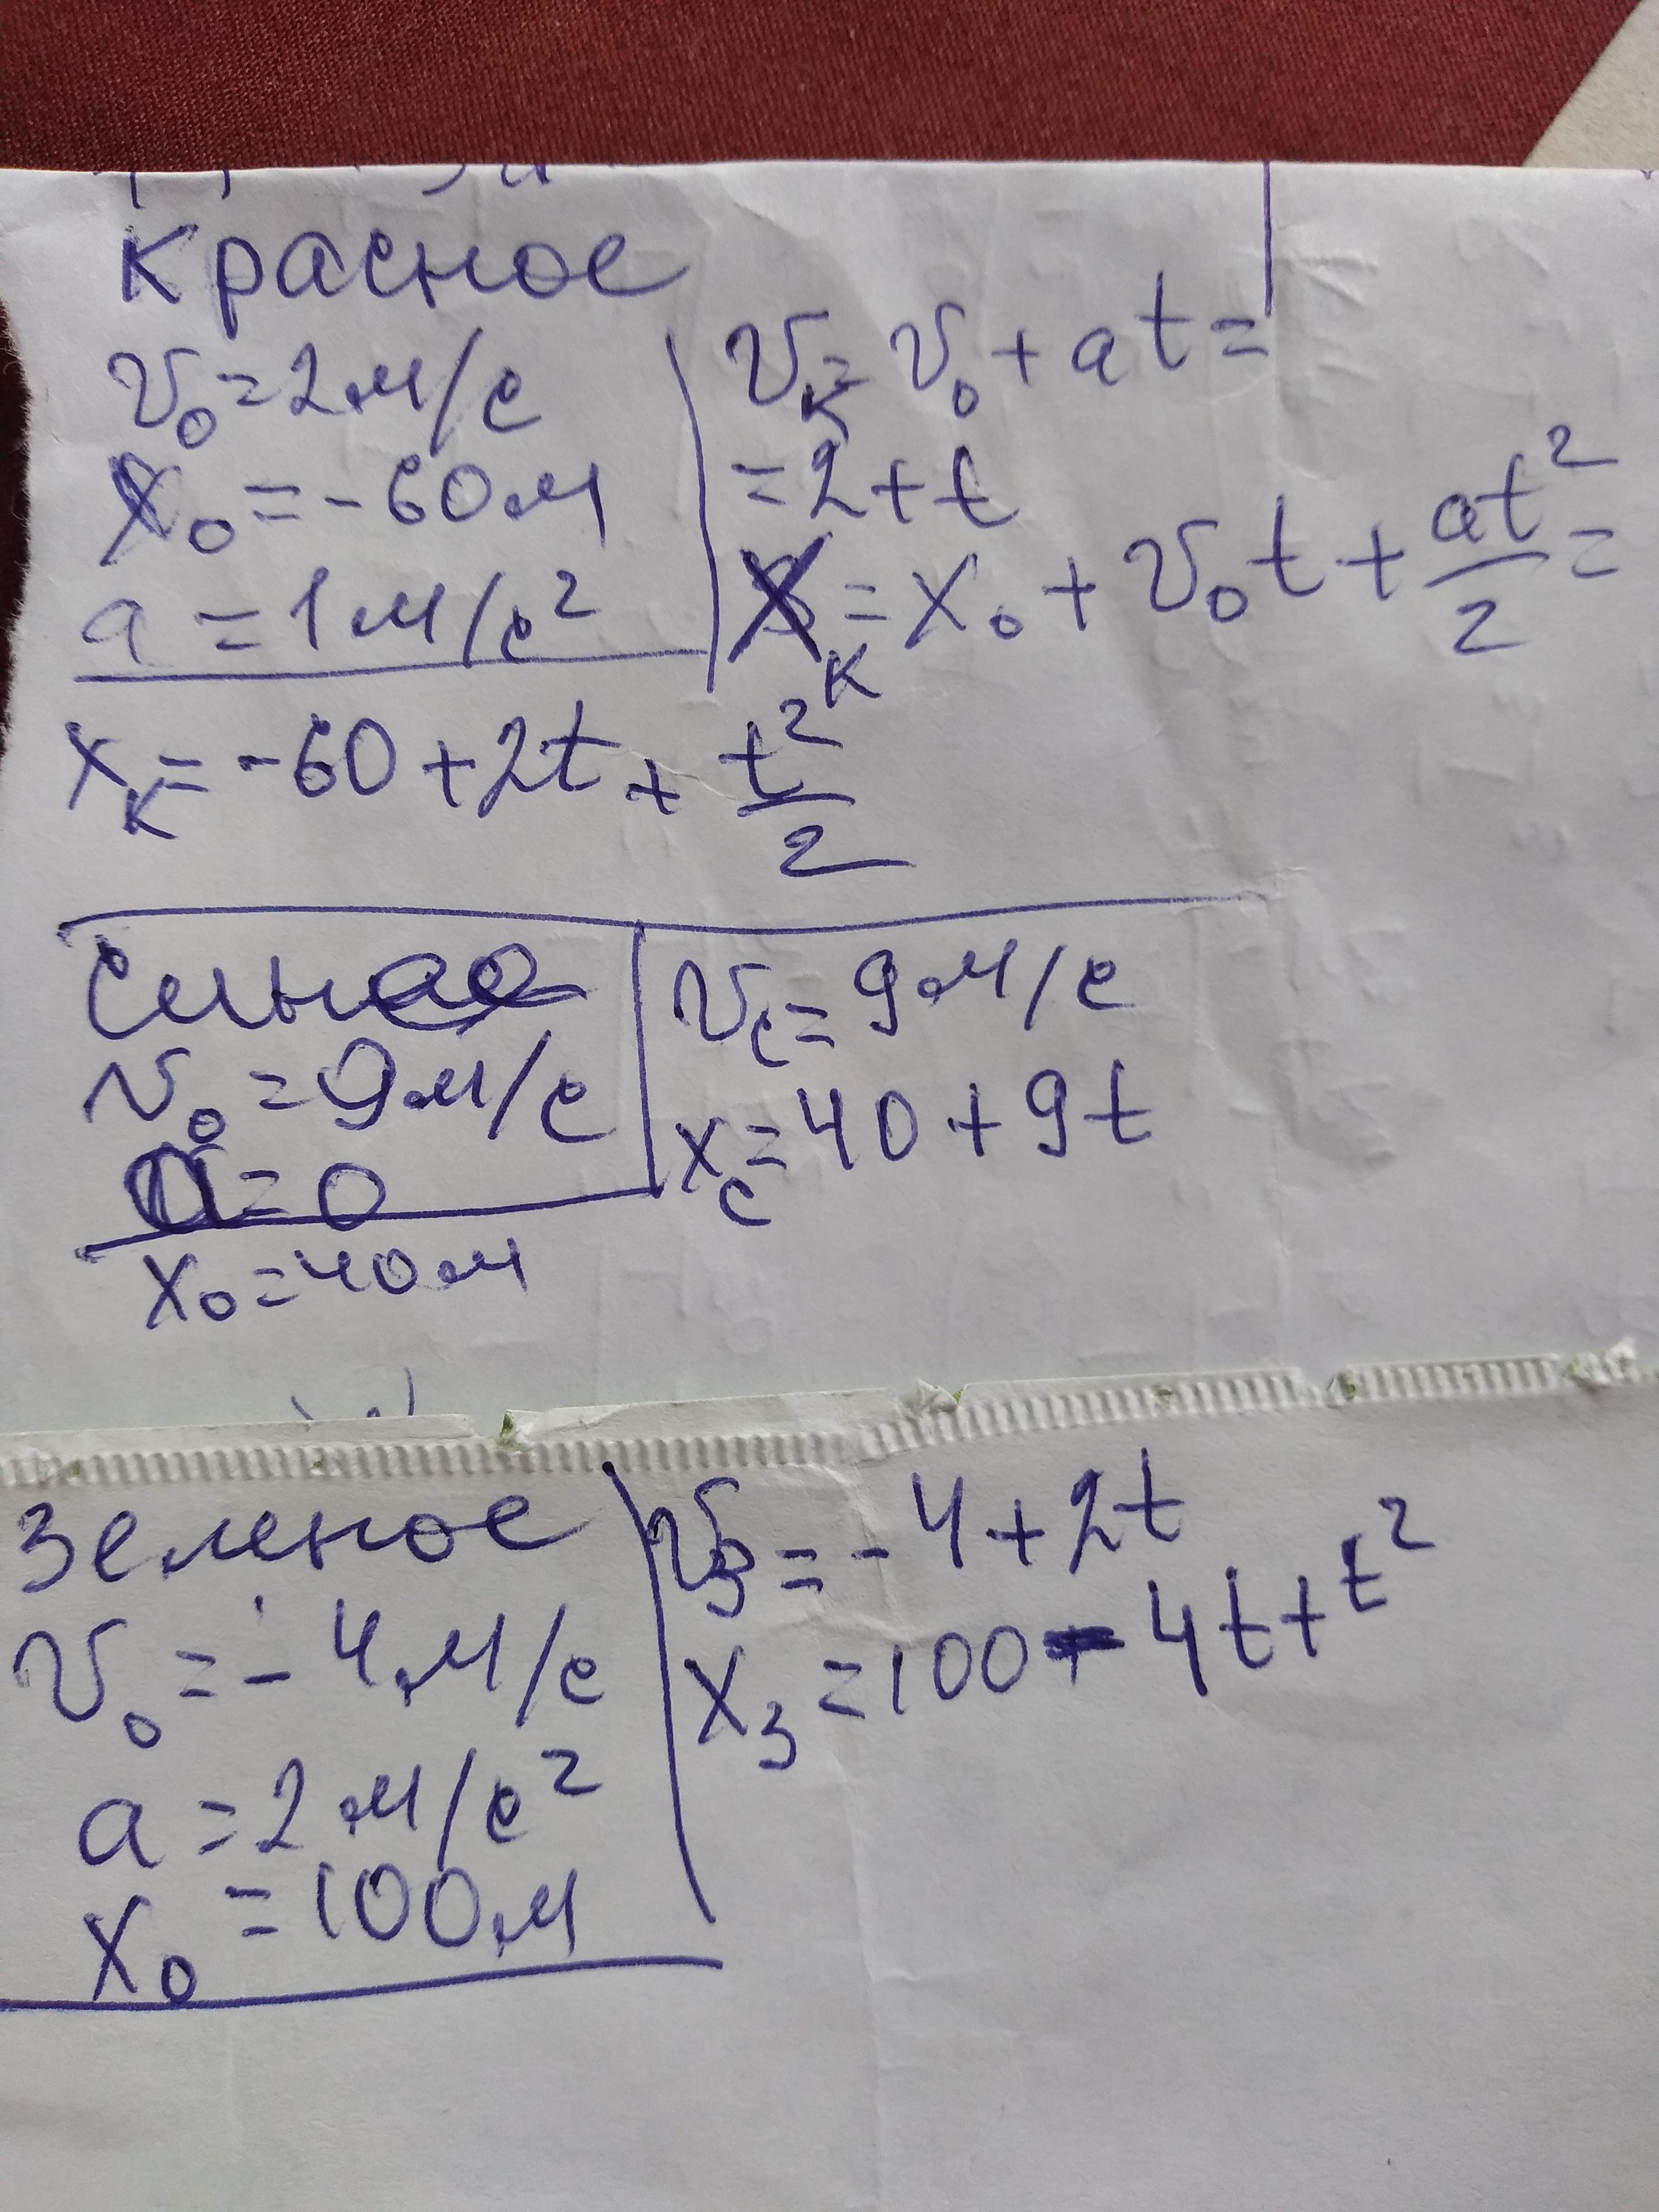 Красное
v₀ = 2 м/с
x₀ = -60 м
a = 1 м/с²
vк = v₀ + at =
= 2 + t
xк = x₀ + v₀t + at²/2 =
xк = -60 + 2t + t²/2
v₀ = 9 м/с
a = 0
x₀ = 40 м
vс = 9 м/с
xс = 40 + 9t
Зеленое
v₀ = -4 м/с
a = 2 м/с²
x₀ = 100 м
vз = -4 + 2t
xз = 100 - 4t + t²